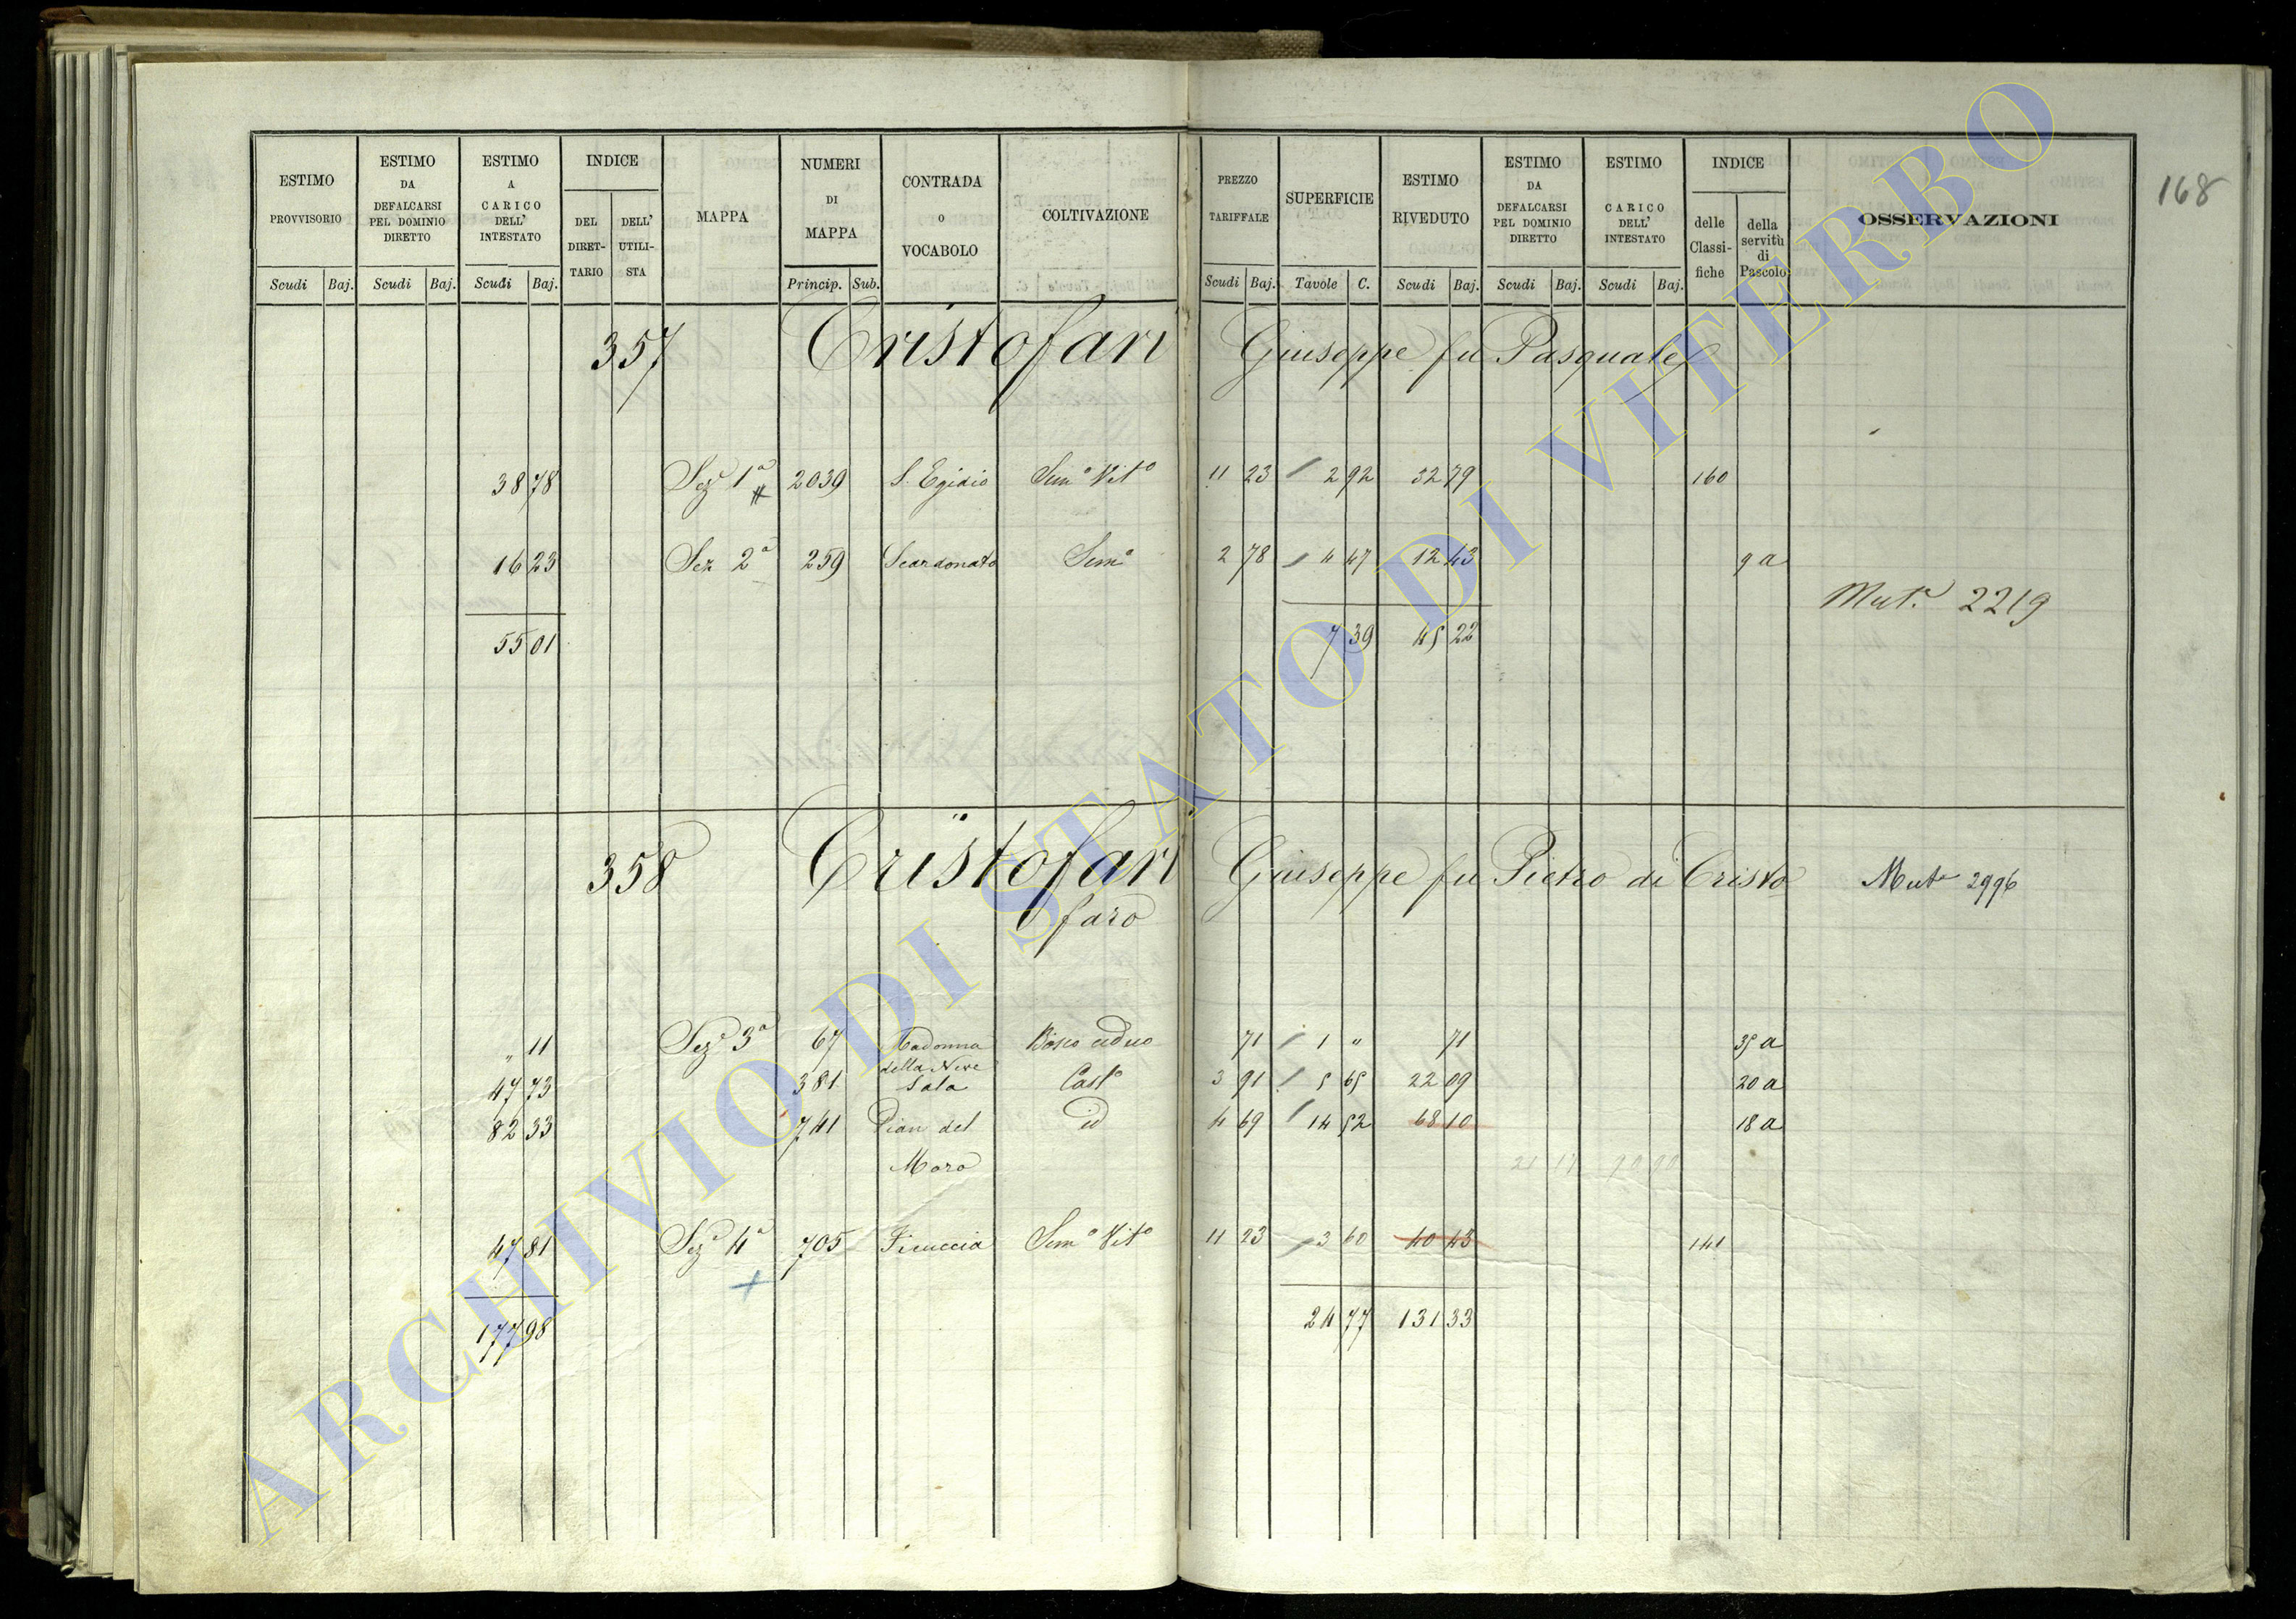 168
ESTIMO PROVVISORIO Scudi Baj. ESTIMO DA DEFALCARSI PEL DOMINIO DIRETTO Scudi Baj. ESTIMO A CARICO DELL' INTESTATO Scudi Baj. INDICE DEL DIRET-TARIO DELL' UTILI-STA MAPPA NUMERI DI MAPPA Princip. Sub. CONTRADA O VOCABOLO COLTIVAZIONE PREZZO TARIFFALE Scudi Baj. SUPERFICIE Tavole C. ESTIMO RIVEDUTO Scudi Baj. ESTIMO DA DEFALCARSI PEL DOMINIO DIRETTO Scudi Baj. ESTIMO A CARICO DELL' INTESTATO Scudi Baj. INDICE delle Classi-fiche della servitù di Pascolo OSSERVAZIONI
357 Cristofari Giuseppe fu Pasquale
38 78 Sez. 1ª # 2039 S. Egidio Sem.º Vit.º 11 23 2 92 32 79 160
16 23 Sez 2ª 259 Scardonato Sem.º 2 78 4 47 12 43 9 a
Mut.e 2219
55 01 7 39 45 22
358 Cristofari Giuseppe fu Pietro di Cristo Mut.e 2996
faro
" 11 Sez. 3ª 67 Madonna Bosco ceduo 71 1 " 71 35 a
della Neve
47 73 381 Sala Cast.º 3 91 5 65 22 09 20 a
82 33 741 Pian del id 4 69 14 52 68 10 18 a
Moro
47 81 Sez. 4ª 705 Ficuccia Sem.º Vit.º 11 23 3 60 40 43 141
+
177 98 24 77 131 33
ARCHIVIO DI STATO DI VITERBO